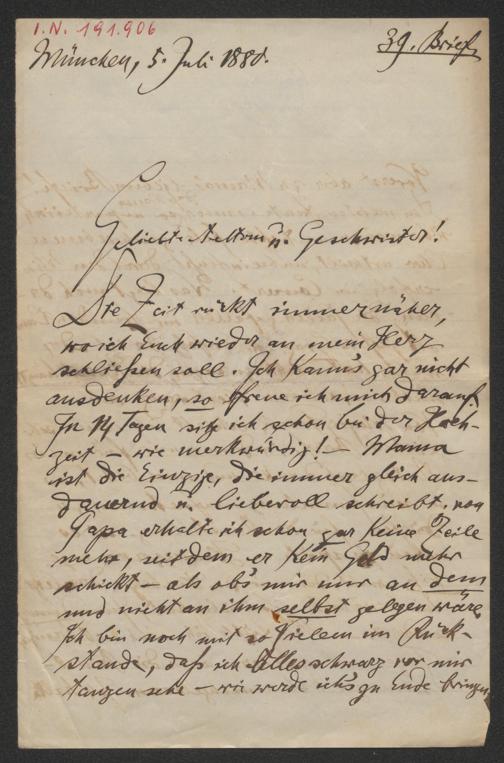 I.N. 191.906
39. Brief
München, 5. Juli 1880.
Geliebte Aeltern u. Geschwister!
Die Zeit rückt immer näher,
wo ich Euch wieder an mein Herz
schließen soll. Ich kann's gar nicht
ausdenken, so freue ich mich darauf.
In 14 Tagen sitz ich schon bei der Hoch-
zeit – wie merkwürdig! – Mama
ist die Einzige, die immer gleich aus-
dauernd u. liebevoll schreibt, von
Papa erhalte ich schon gar keine Zeile
mehr, seitdem er kein Geld mehr
schickt – als ob's mir nur an dem
und nicht an ihm selbst gelegen wäre.
Ich bin noch mit so Vielem im Rück-
stande, daß ich Alles schwarz vor mir
tanzen sehe – wie werde ich's zu Ende bringen